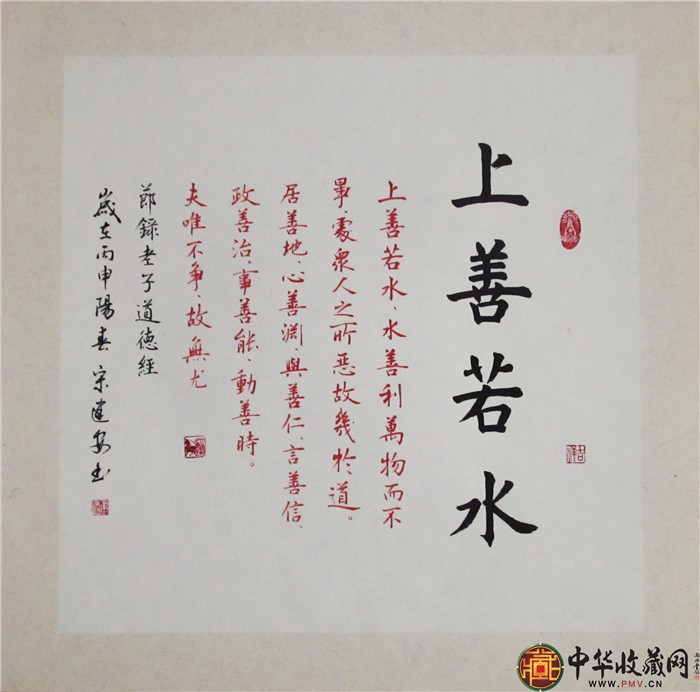 上善若水
上善若水、水善利萬物而不
畢、處衆人之所惡故幾於道。
居善地、心善淵、與善仁、言善信、
政善治、事善能、動善時。
夫唯不争、故無尤
節録老子道德經
歲在丙申陽春宋建安书
中华收藏网
WWW.PMV.CN